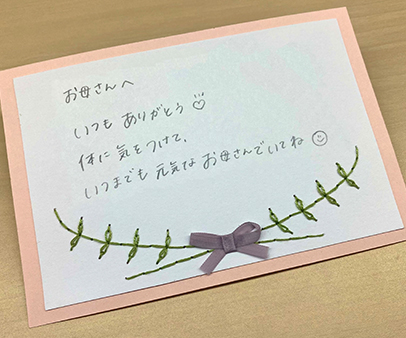 お母さんへ
いつも ありがとう♡
体に気をつけて、
いつまでも 元気な お母さんでいてね ☺